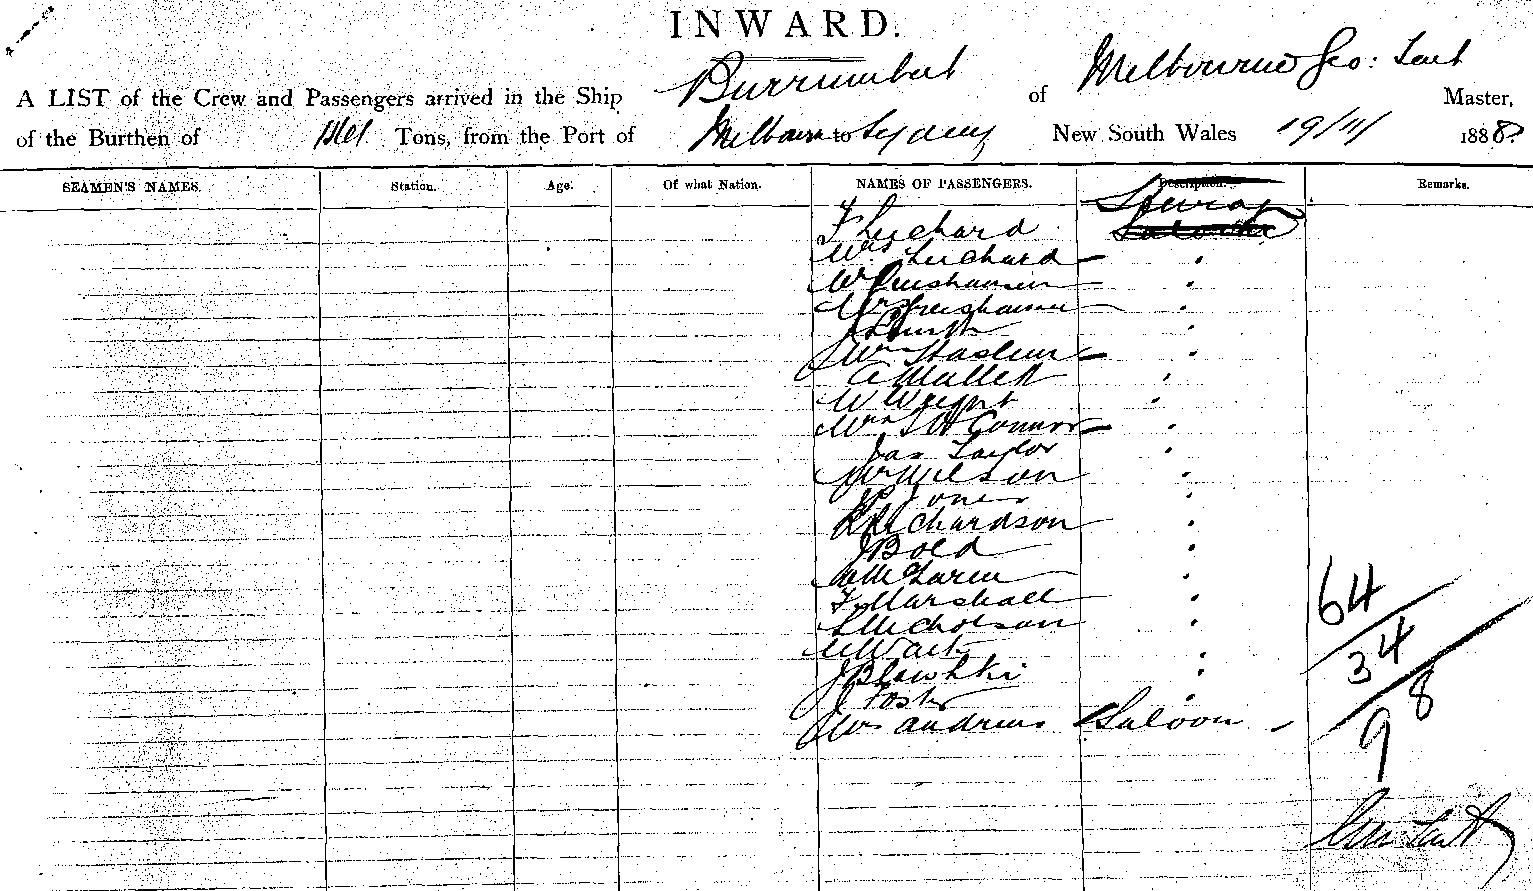 INWARD.
A LIST of the Crew and Passengers arrived in the Ship Burrumbeet of Melbourne Geo: Tait Master,
of the Burthen of Tons, from the Port of Melbourne to Sydney New South Wales 19/11/ 1888.
SEAMEN'S NAMES. Station. Age. Of what Nation. NAMES OF PASSENGERS. Description. Remarks.
Steerage
F Luchard Saloon
Mrs Luchard "
W "
Mrs "
J Smith "
Mrs Haslem "
A Mallett "
W Wright "
Mrs O'Connor "
Jas Taylor "
Mr Wilson "
Jones "
R Richardson "
J Bold "
McLaren "
F Marshall "
Nicholson "
W Wait "
J "
J Foster "
Mrs Andrews Saloon
64
34
98
Tait